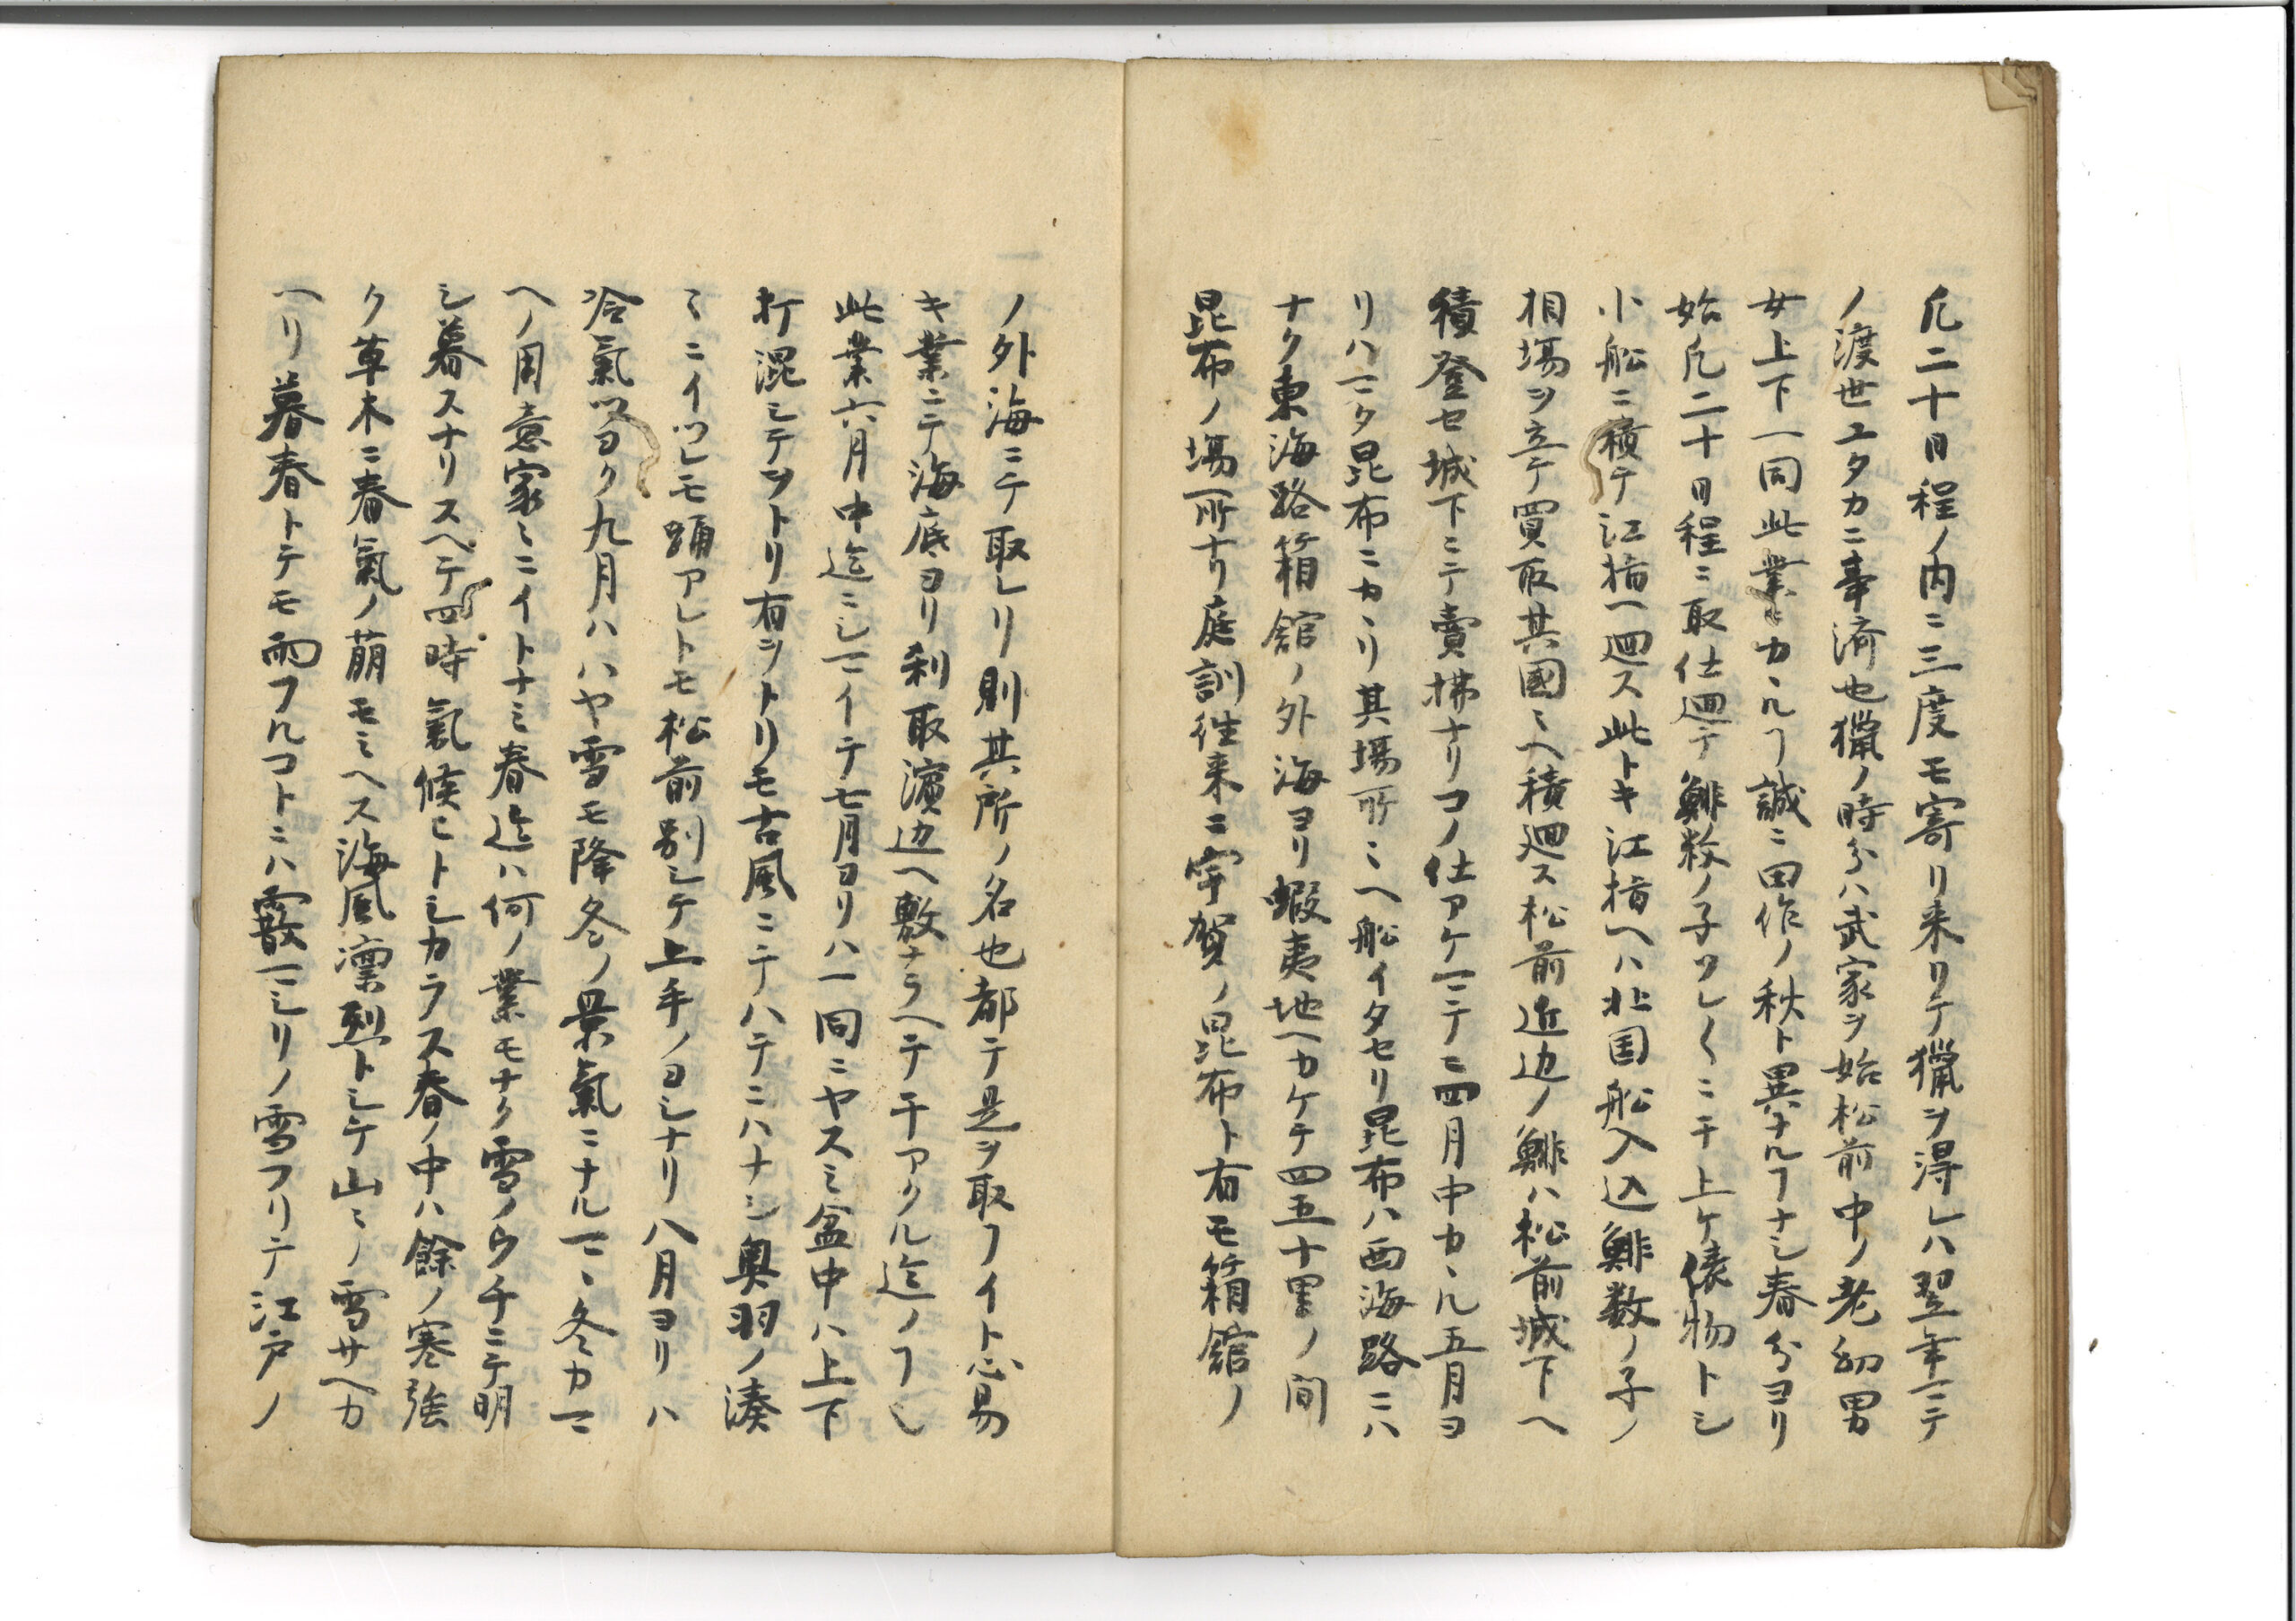 凡二十日程ノ内ニ三度モ寄リ来リテ獵ヲ得レハ翌年マテ
ノ渡世ユタカニ事済也獵ノ時分ハ武家ヲ始松前中ノ老幼男
女上下一同此業ニカヽルヿ誠ニ田作ノ秋ト異ナルヿナシ春分ヨリ
始凡二十日程ニ取仕廻テ鯡数ノ子ツレ〱ニ干上ケ俵物トシ
小船ニ積テ江指ヘ廻ス此トキ江指ヘハ北国船入込鯡数ノ子ノ
相場ヲ立テ買取其國ミヘ積廻ス松前近辺ノ鯡ハ松前城下ヘ
積登セ城下ニテ賣拂ナリコノ仕アケマテニ四月中カヽル五月ヨ
リハマタ昆布ニカヽリ其場所ミヘ船イタセリ昆布ハ西海路ニハ
ナク東海路箱館ノ外海ヨリ蝦夷地ヘカケテ四五十里ノ間
昆布ノ場所ナリ庭訓往来ニ宇賀ノ昆布ト有モ箱館ノ
ノ外海ニテ取レリ則其所ノ名也都テ是ヲ取ヿイト心易
キ業ニテ海底ヨリ刹取濵辺ヘ敷ナラヘテ干アクル迄ノヿ也
此業六月中迄ニシマイテ七月ヨリハ一同ニヤスミ盆中ハ上下
打混シテヲトリ有ヲトリモ古風ニテハテニハナシ奥羽ノ湊
ミニイツレモ踊アレトモ松前別シテ上手ノヨシナリ八月ヨリハ
冷氣ツヨク九月ハハヤ雪モ降冬ノ景氣ニナルマヽ冬カマ
ヘノ用意家ミニイトナミ春迄ハ何ノ業モナク雪ノウチニテ明
シ暮スナリスヘテ四時氣候ヒトシカラス春ノ中ハ餘ノ寒強
ク草木ニ春氣ノ萠モミヘス海風凛烈トシテ山ミノ雪サヘカ
ヘリ暮春トテモ雨フルコトニハ霰マシリノ雪フリテ江戸ノ